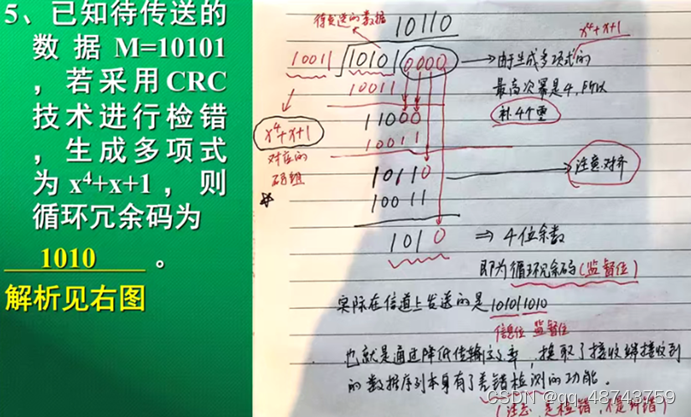 5、已知待传送的
数据M=10101
,若采用CRC
技术进行检错
,生成多项式
为x⁴+x+1,则
循环冗余码为
1010 。
解析见右图
待发送的数据
10110
x⁴+x+1
10011 10101 0000
→由于生成多项式的
最高次幂是4,所以
补4个零
10011
11000
10011
x⁴+x+1
对应的
码组
10110
注意对齐
10011
1010 ⇒ 4位余数
即为循环冗余码(监督位)
实际在信道上发送的是10101 1010
信息位 监督位
也就是通过降低传输效率,换取了接收端接收到
的数据序列本身有了差错检测的功能。
(注意:是检错,不是纠错)
CSDN @qq_48743759